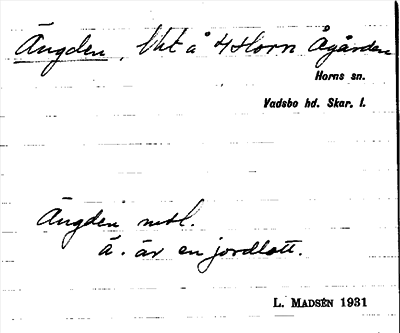 Ängden, Vkt å 4 Horn Ågården
Horns sn.
Vadsbo hd. Skar. l.
Ängden nedl.
Ä. är en jordlott.
L. MADSÉN 1931